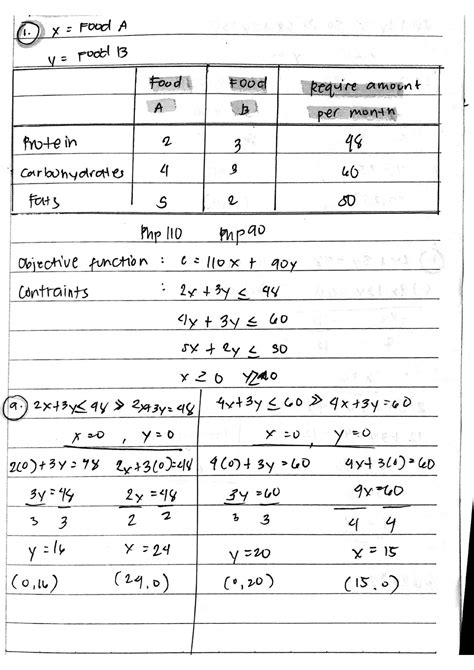 1. x = Food A
y = Food B
Food A Food B Require amount per month
Protein 2 3 48
Carbohydrates 4 3 60
Fats 5 2 50
Php 110 Php 90
Objective function : c = 110x + 90y
Contraints : 2x + 3y ≤ 48
4x + 3y ≤ 60
5x + 2y ≤ 50
x ≥ 0 y ≥ 0
a. 2x+3y ≤ 48 » 2x+3y = 48 4x+3y ≤ 60 » 4x+3y = 60
x=0 , y=0 x=0 , y=0
2(0)+3y = 48 2x+3(0)=48 4(0)+3y=60 4x+3(0)=60
3y=48 2x=48 3y=60 4x=60
3 3 2 2 3 3 4 4
y=16 x=24 y=20 x=15
(0,16) (24,0) (0,20) (15,0)